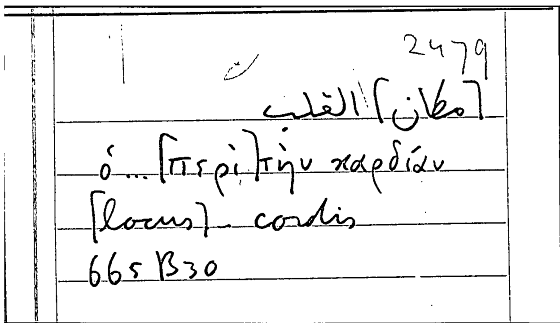 2479
[مكان] القلب
ὁ... [περὶ] τὴν καρδίαν
[locus] cordis
665 B30